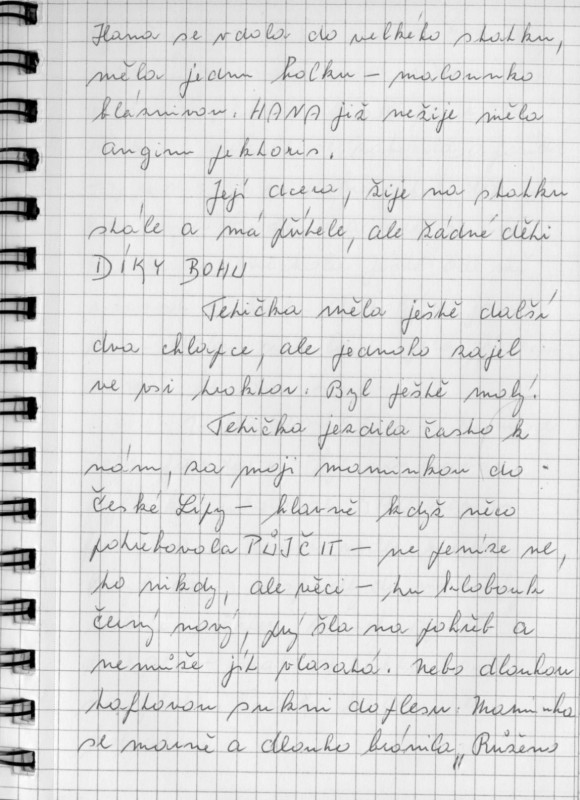 Hana se vdala do velkého statku,
měla jednu holku – malounko
bláznivou. HANA již nežije měla
anginu pektoris.
Její dcera, žije na statku
stále a má přítele, ale žádné děti
DÍKY BOHU
Tetička měla ještě další
dva chlapce, ale jednoho zajel
ve vsi traktor. Byl ještě malý.
Tetička jezdila často k
nám, za moji maminkou do
České Lípy – hlavně když něco
potřebovala PŮJČIT – ne peníze ne,
to nikdy, ale věci – tu klobouk
černý nový, prý šla na pohřeb a
nemůže jít vlasatá. Nebo dlouhou
taftovou sukni do plesu. Maminka
se marně a dlouho bránila „Růženo